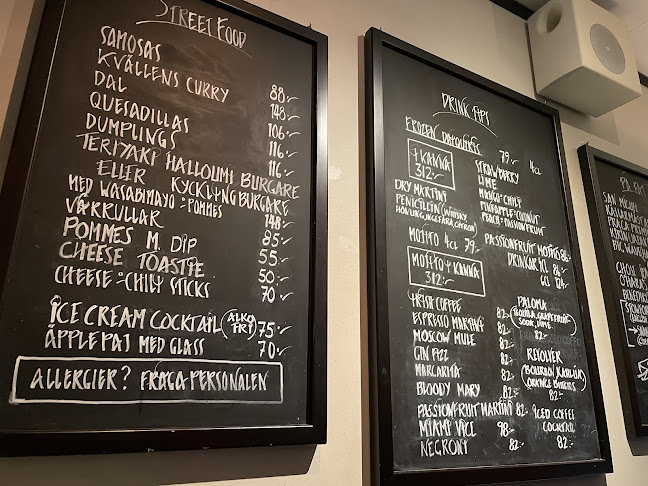 STREET FOOD
SAMOSAS 88:-
KVÄLLENS CURRY 148:-
DAL 106:-
QUESADILLAS 116:-
DUMPLINGS 116:-
TERIYAKI HALLOUMI BURGARE
ELLER KYCKLINGBURGARE
MED WASABIMAYO & POMMES 148:-
VÅRRULLAR 85:-
POMMES M. DIP 55:-
CHEESE TOASTIE 50:-
CHEESE & CHILI STICKS 70:-
ICE CREAM COCKTAIL (ALKO FRI) 75:-
ÄPPLEPAJ MED GLASS 70:-
ALLERGIER? FRÅGA PERSONALEN
DRINK
FROZEN DAIQUIRIS 79:- 4CL
1 KANNA
312:-
STRAWBERRY
LIME
MANGO & CHILI
PINEAPPLE & COCONUT
PEACH & PASSIONFRUIT
DRY MARTINI
PENICILLIN (WHISKY,
HONUNG, INGEFÄRA, CITRON)
MOJITO 4CL 79:-
PASSIONFRUIT MOJITO 86:-
MOJITO 1 KANNA
312:-
DRINKAR 4CL 84:-
6CL 124:-
IRISH COFFEE 82:-
ESPRESSO MARTINI 82:-
MOSCOW MULE 82:-
GIN FIZZ 82:-
MARGARITA 82:-
BLOODY MARY 82:-
PASSIONFRUIT MARTINI 82:-
MIAMI VICE 98:-
NEGRONY 82:-
PALOMA
(TEQUILA, GRAPEFRUIT,
SODA, LIME)
82:-
REVOLVER
(BOURBON, KAHLUA,
ORANGE BITTERS)
82:-
ICED COFFEE
COCKTAIL
82:-
SAN MIGUEL